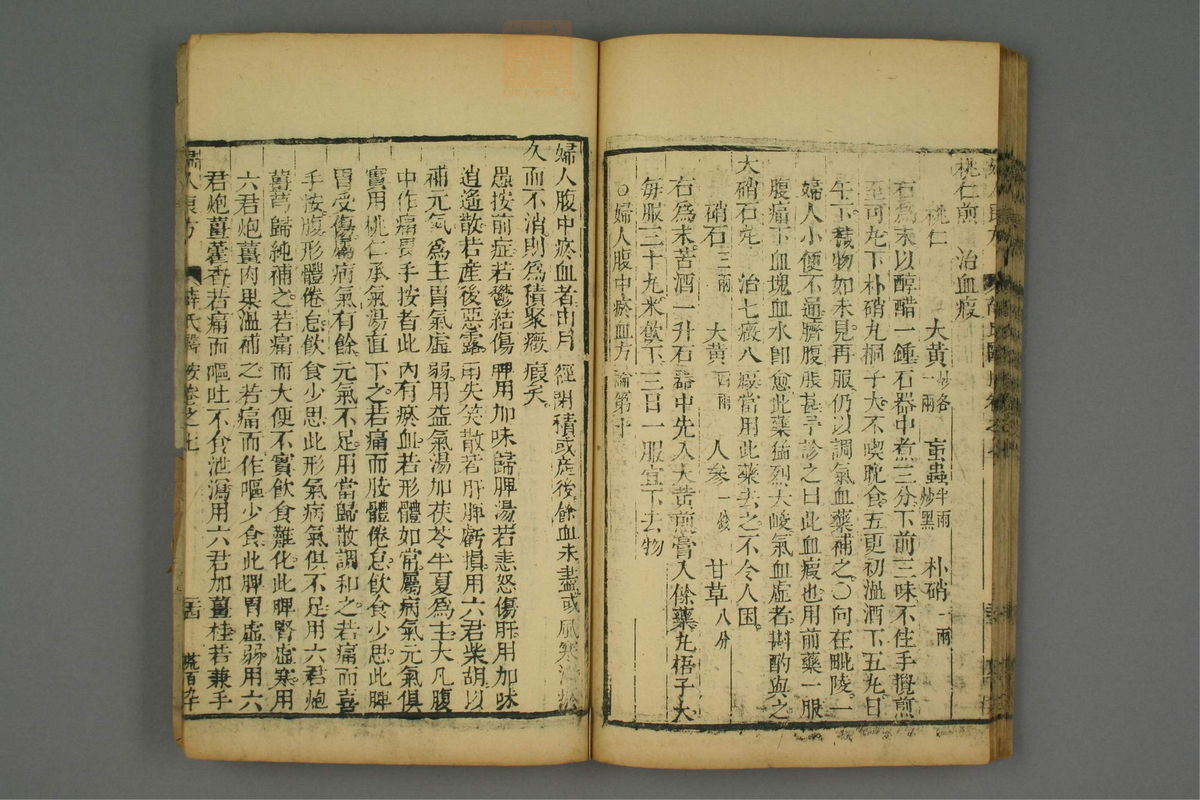 桃仁煎　治血瘕
桃仁　大黃炒各一兩　䖟蟲半兩炒黑　朴硝一兩
右爲末以醇醋一鍾石器中煮三分下前三味不住手攪煎
至可丸下朴硝丸桐子大不喫晚食五更初溫酒下五丸日
午下穢物如未見再服仍以調氣血藥補之〇向在毗陵一
婦人小便不通臍腹脹甚予診之曰此血瘕也用前藥一服
腹痛下血塊血水卽愈此藥猛烈大峻氣血虛者斟酌與之
大硝石丸　治七癥八瘕當用此藥去之不令人困
硝石三兩　大黃四兩　人參　甘草八分
右爲末苦酒一升石器中先入大黃煎膏入餘藥丸梧子大
每服三十丸米飲下三日一服宜下去物
〇婦人腹中瘀血方論第十
婦人腹中瘀血者由月經閉積或産後餘血未盡或風寒滯
久而不消則爲積聚癥瘕矣
愚按前症若鬱結傷脾用加味歸脾湯若恚怒傷肝用加味
逍遙散若産後惡露用失笑散若肝脾虧損用六君柴胡以
補元氣爲主胃氣虛弱用益氣湯加茯苓半夏爲主大凡腹
中作痛畏手按者此內有瘀血若形體如常屬病氣元氣俱
實用桃仁承氣湯直下之若痛而肢體倦怠飲食少思此脾
胃受傷屬病氣有餘元氣不足用當歸散調和之若痛而喜
手按腹形體倦怠飲食少思此形氣病氣俱不足用六君炮
薑芎歸純補之若痛而大便不實飲食難化此脾腎虛寒用
六君炮薑肉果溫補之若痛而作嘔少食此脾胃虛弱用六
君炮薑藿香若痛而嘔吐不食泄瀉用六君加薑桂若兼手
婦人良方　薛氏醫按卷之七